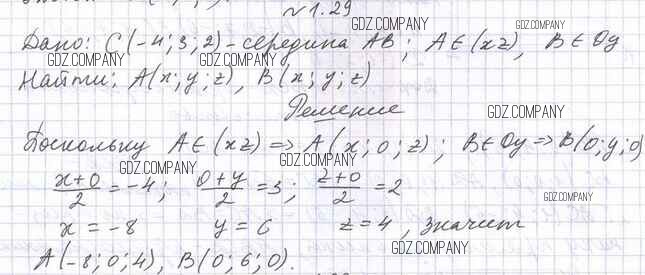 № 1.29
Дано: C(-4; 3; 2) - середина AB; A∈(xz), B∈Oy
Найти: A(x; y; z), B(x; y; z)
Решение
Поскольку A∈(xz) => A(x; 0; z); B∈Oy => B(0; y; 0)
(x+0)/2 = -4; (0+y)/2 = 3; (z+0)/2 = 2
x = -8 y = 6 z = 4, значит
A(-8; 0; 4), B(0; 6; 0).
GDZ.COMPANY
GDZ.COMPANY
GDZ.COMPANY
GDZ.COMPANY
GDZ.COMPANY
GDZ.COMPANY
GDZ.COMPANY
GDZ.COMPANY
GDZ.COMPANY